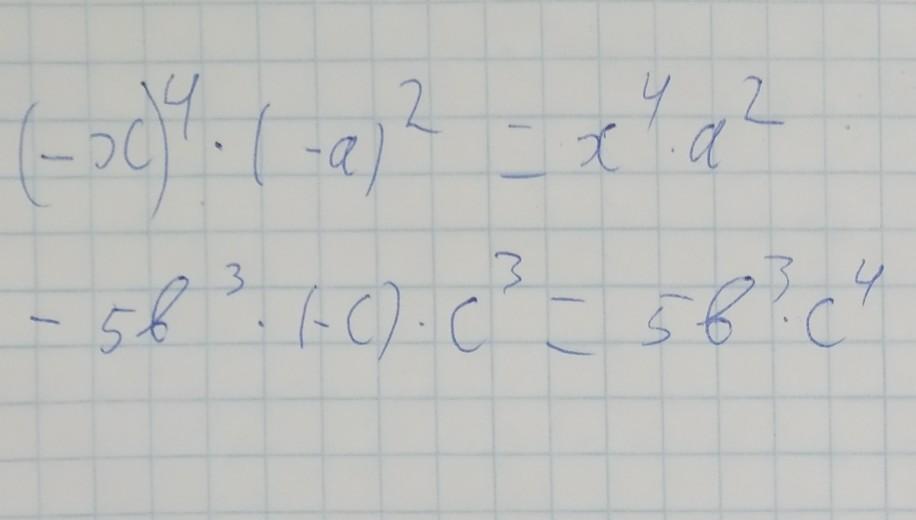 (-x)⁴ · (-a)² = x⁴ · a²
- 5b³ · (-c) · c³ = 5b³ · c⁴